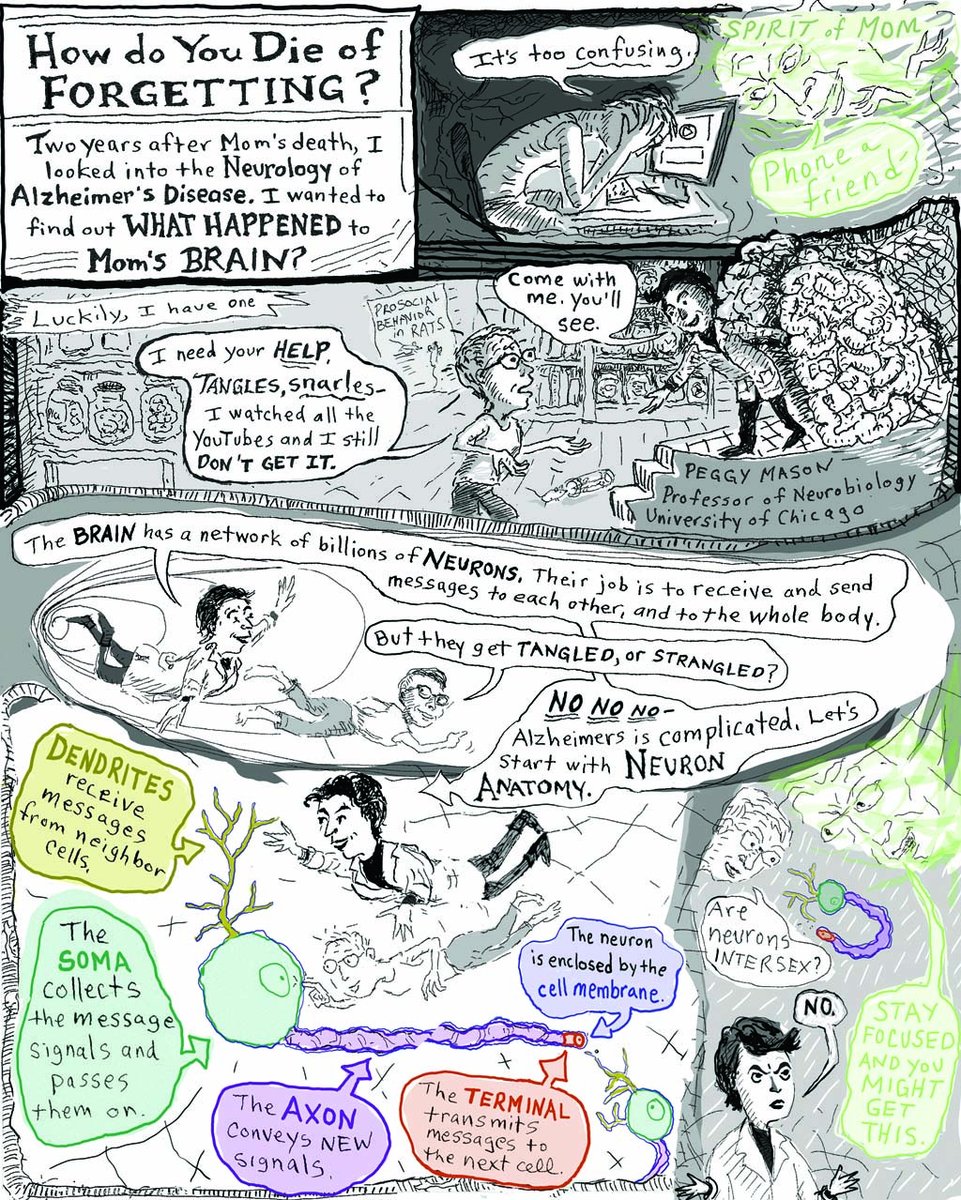 How do You Die of
FORGETTING?
Two years after Mom's death, I
looked into the Neurology of
Alzheimer's Disease. I wanted to
find out WHAT HAPPENED to
Mom's BRAIN?
It's too confusing.
SPIRIT of MOM
Phone a
friend
Luckily, I have one
PROSOCIAL
BEHAVIOR
in RATS
I need your HELP.
TANGLES, snarles-
I watched all the
YouTubes and I still
DON'T GET IT.
Come with
me. you'll
see.
PEGGY MASON
Professor of Neurobiology
University of Chicago
The BRAIN has a network of billions of NEURONS. Their job is to receive and send
messages to each other, and to the whole body.
But they get TANGLED, or STRANGLED?
NO NO NO-
Alzheimers is complicated. Let's
start with NEURON
ANATOMY.
DENDRITES
receive
messages
from neighbor
cells.
The
SOMA
collects
the message
signals and
passes
them on.
The neuron
is enclosed by the
cell membrane.
The AXON
conveys NEW
signals.
The TERMINAL
transmits
messages to
the next cell.
Are
neurons
INTERSEX?
NO.
STAY
FOCUSED
AND YOU
MIGHT
GET
THIS.